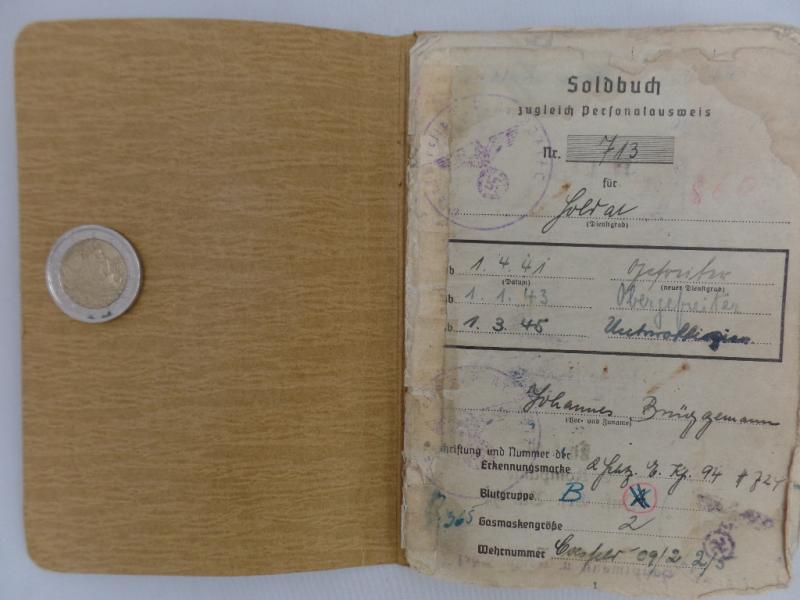 Soldbuch
zugleich Personalausweis
Nr. 713
für
Soldat
(Dienstgrad)
b 1. 4. 41 Gefreiter
(Datum) (neuer Dienstgrad)
b 1. 1. 43 Obergefreiter
b 1. 3. 45 Unteroffizier
Johannes Brüggemann
(Vor- und Zuname)
chriftung und Nummer der
Erkennungsmarke E. Kp. 94
Blutgruppe B
365
Gasmaskengröße 2
Wehrnummer Coesfeld 09/2 2/5